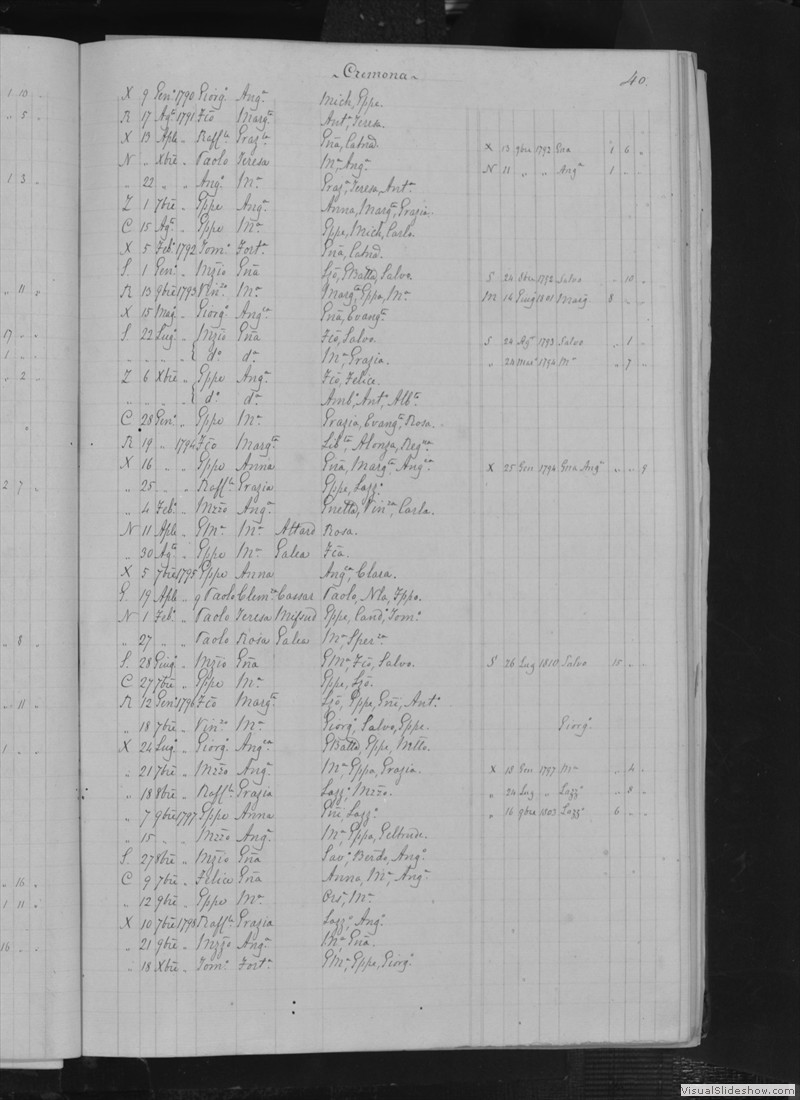 1 10 „
„ 5 „
1 3 „
„ 11 „
17 „ „
1 „ „
„ 2 „
2 7 „
„ 8 „
„ 11 „
1 „ „
„ 16 „
1 11 „
16 „ „
Cremona
40
X 9 Gen° 1790 Giorg° Ang.ª Mich, Gppe.
R 17 Ag° 1791 Fco Marg.ta Ant°, Teresa.
X 13 Aple „ Raff.le Graz.ia Gña, Catña. X 13 9bre 1792 Gña 1 6 „
N „ Xbre „ Paolo Teresa M.ª Ang.ª N 11 „ „ Ang.ª 1 „ „
„ 22 „ „ Ang° M.ª Graz.ª, Teresa, Ant.ª
Z 1 7bre „ Gppe Ang.ª Anna, Marg.ª, Grazia.
C 15 Ag° „ Gppe M.ª Gppe, Mich, Carlo.
X 5 Feb° 1792 Tom° Fort.ª Gña, Catña.
S. 1 Gen° „ Mzio Gña Gio, GBatta, Salvo. S 24 8bre 1792 Salvo „ 10 „
R 13 9bre 1793 Vin.zo M.ª Marg.ta, Gppa, M.ª M 14 Giug 1801 Marg. 8 „ „
X 15 Mag° „ Giorg° Ang.ca Gña, Evang.ta
S. 22 Lug° „ Mzio Gña Fco, Salvo. S 24 Ag° 1793 Salvo „ 1 „
„ „ „ „ { d° d.ª M.ª, Grazia. „ 24 Mar° 1794 M.ª „ 7 „
Z 6 Xbre „ Gppe Ang.ª Fco, Felice.
„ „ „ „ { d° d.ª Amb°, Ant°, Alb.ta
C 28 Gen° „ Gppe M.ª Grazia, Evang.ta, Rosa.
R 19 „ 1794 Fco Marg.ta Lib.ta, Alonza, Reg.na
X 16 „ „ Gppe Anna Gña, Marg.ta, Ang.ca X 25 Gen 1794 Gña Ang.ª „ „ 9
„ 25 „ „ Raff.le Grazia Gppe, Lazz°
„ 4 Feb° „ Mzzo Ang.ª Gnetta, Vin.za, Carla.
N 11 Aple „ GM.ª M.ª Attard Rosa.
„ 30 Ag° „ Gppe M.ª Galea Fca.
X 5 7bre 1795 Gppe Anna Ang.ca, Clara.
G. 19 Aple „ Paolo Clem.za Cassar Paolo, Nla, Fppo.
N 1 Feb° „ Paolo Teresa Mifsud Gppe, Cand°, Tom°
„ 27 „ „ Paolo Rosa Galea M.ª, Sper.za
S. 28 Giug° „ Mzio Gña GM.ª, Fco, Salvo. S 26 Lug 1810 Salvo 15 „ „
C 27 7bre „ Gppe M.ª Gppe, Gio.
R 12 Gen° 1796 Fco Marg.ta Gio, Gppe, Gni, Ant°
„ 18 7bre „ Vin.zo M.ª Giorg°, Salvo, Gppe. Giorg°
X 24 Lug° „ Giorg. Ang.ca GBatta, Gppe,
„ 21 7bre „ Mzzo Ang.ª M.ª, Gppa, Grazia. X 18 Gen 1797 M.ª „ 4 „
„ 18 8bre „ Raff.le Grazia Lazz°, Mzzo. „ 24 Lug „ Lazz° „ 8 „
„ 7 9bre 1797 Gppe Anna Gni, Lazz° „ 16 9bre 1803 Lazz° 6 „ „
„ 15 „ „ Mzzo Ang.ª M.ª, Gppa, Geltrude.
S. 27 8bre „ Mzio Gña Sav°, Berdo, Ang°
C 9 7bre „ Felice Gña Anna, M.ª, Ang.ª
„ 12 9bre „ Gppe M.ª Ors.ª, M.ª
X 10 7bre 1798 Raff.le Grazia Lazz°, Ang°
„ 21 9bre „ Mzzo Ang.ª M.ª Gña.
„ 18 Xbre „ Tom° Fort.ª GM.ª, Gppe, Giorg°
VisualSlideshow.com